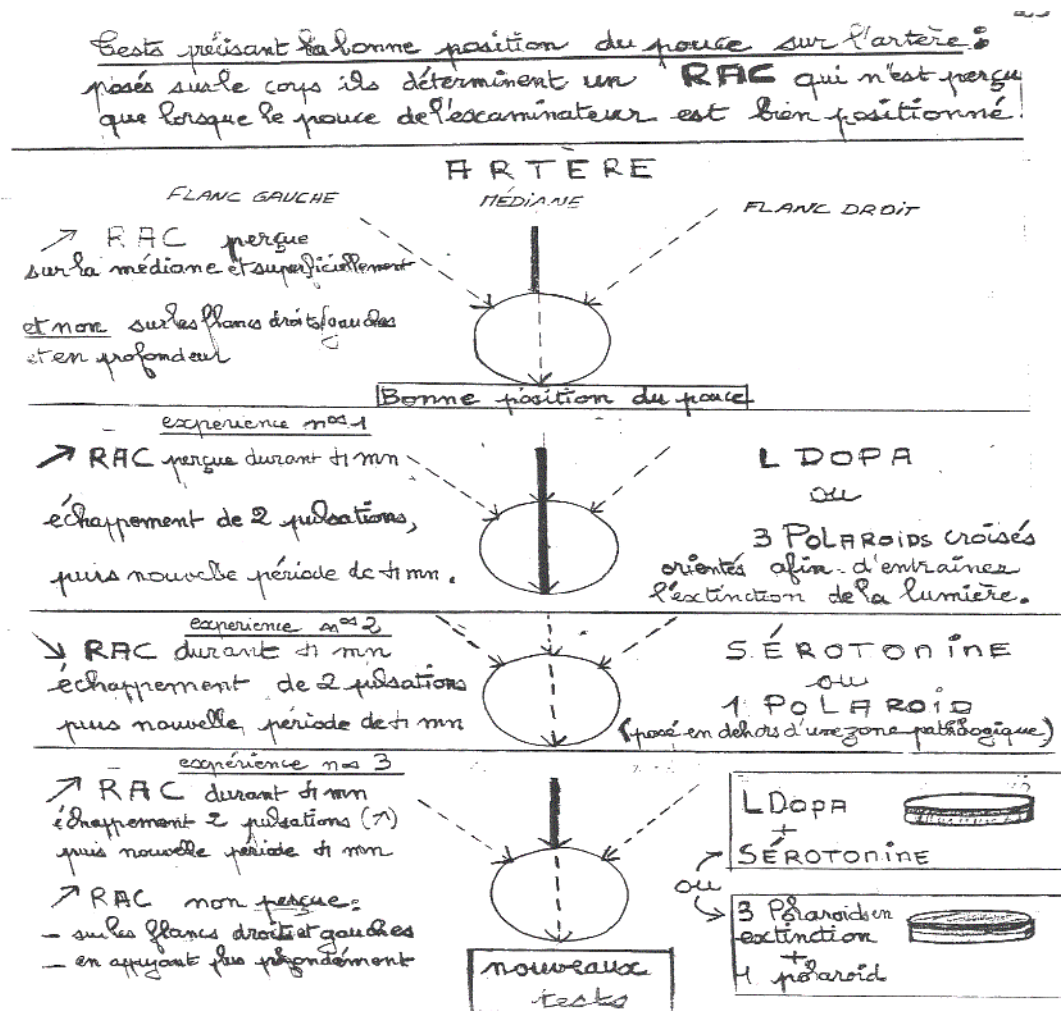 Tests précisant la bonne position du pouce sur l'artère :
posés sur le corps ils déterminent un RAC qui n'est perçu
que lorsque le pouce de l'examinateur est bien positionné.
ARTÈRE
FLANC GAUCHE
MÉDIANE
FLANC DROIT
↗ RAC perçue
sur la médiane et superficiellement
et non sur les flancs droits/gauches
et en profondeur
Bonne position du pouce
expérience nos 1
↗ RAC perçue durant ±1 mn
échappement de 2 pulsations,
puis nouvelle période de ±1 mn.
L DOPA
ou
3 POLAROIDS croisés
orientés afin d'entraîner
l'extinction de la lumière.
expérience nos 2
↘ RAC durant ±1 mn
échappement de 2 pulsations
puis nouvelle, période de ±1 mn
SÉROTONINE
ou
1 POLAROID
(posé en dehors d'une zone pathologique)
expérience nos 3
↗ RAC durant ±1 mn
échappement 2 pulsations (↗)
puis nouvelle période ±1 mn
↗ RAC non perçue :
- sur les flancs droits et gauches
- en appuyant plus profondément
nouveaux
tests
L Dopa
+
SÉROTONINE
ou
3 Polaroids en
extinction
+
1 polaroid